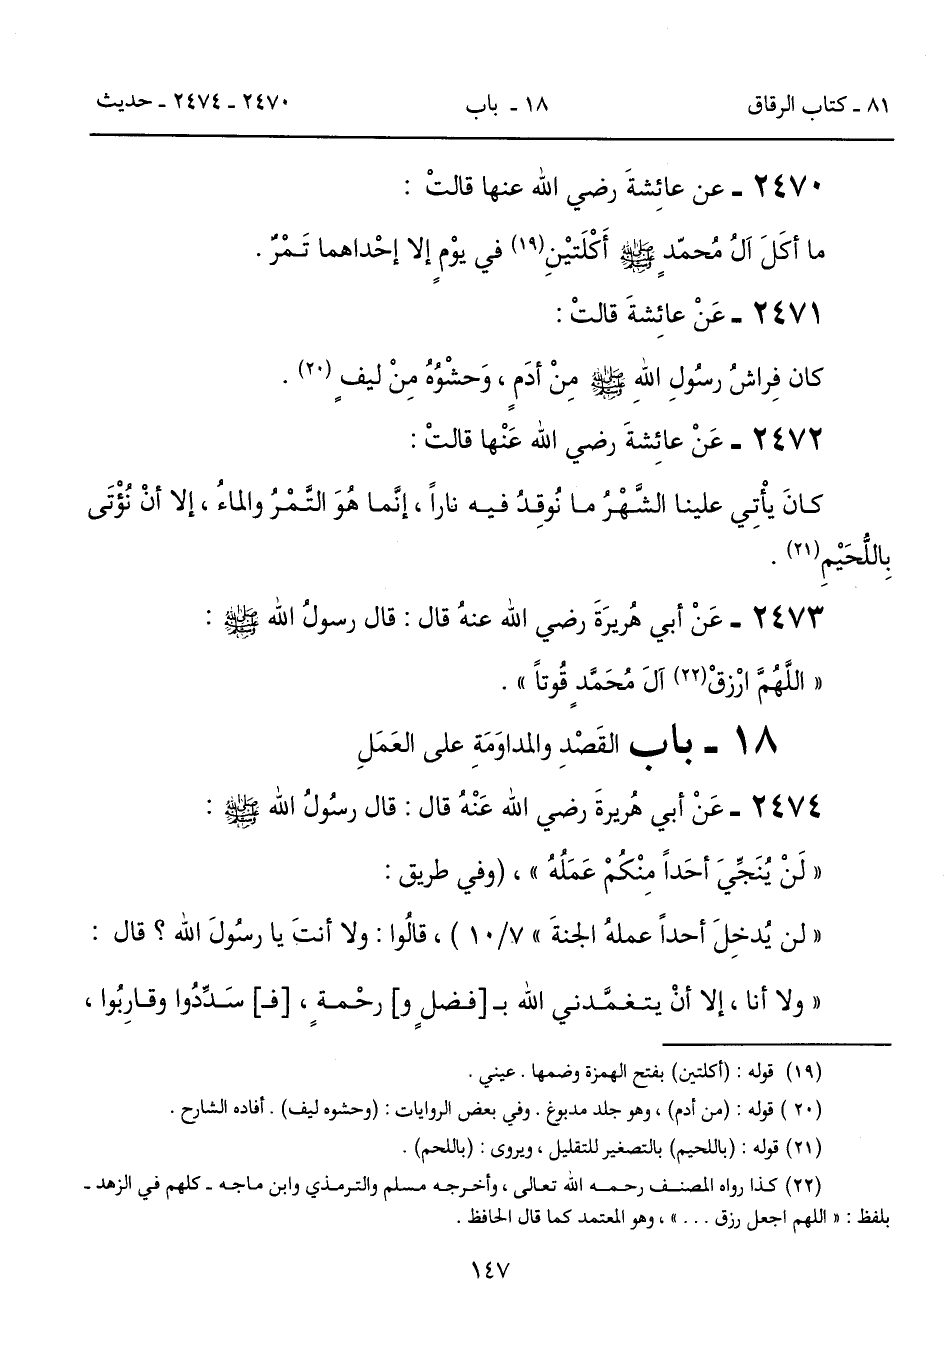 ٨١ - كتاب الرقاق ١٨ - باب ٢٤٧٠ - ٢٤٧٤ - حديث
٢٤٧٠ - عن عائشةَ رضي الله عنها قالتْ :
ما أكَلَ آلُ مُحمّدٍ ﷺ أَكْلَتيْنِ(١٩) في يوْمٍ إلا إحْداهما تَـمْرٌ .
٢٤٧١ - عَنْ عائِشةَ قالتْ :
كان فِراشُ رسوُلِ اللهِ ﷺ مِنْ أدَمٍ ، وَحشْوُهُ مِنْ ليفٍ (٢٠) .
٢٤٧٢ - عَنْ عائِشةَ رضي الله عَنْها قالتْ :
كانَ يأْتِي علينا الشَّهْرُ ما نُوقِدُ فيه ناراً ، إنَّما هُوَ التَّمْرُ والماءُ ، إلا أنْ نُؤْتَى
بِاللُّحَيْمِ(٢١) .
٢٤٧٣ - عَنْ أبي هُريرَةَ رضي الله عنهُ قال : قال رسولُ الله ﷺ :
« اللَّهُمَّ ارْزقْ(٢٢) آلَ مُحَمَّدٍ قُوتاً » .
١٨ - باب القَصْدِ والمداوَمَةِ على العَمَلِ
٢٤٧٤ - عَنْ أبي هُريرةَ رضي الله عَنْهُ قال : قال رسُولُ الله ﷺ :
« لَنْ يُنَجِّيَ أحَداً مِنْكُمْ عَمَلُهُ » ، (وفي طريق :
« لن يُدخِلَ أحداً عملهُ الجنةَ » ١٠/٧ ) ، قالُوا : ولا أنتَ يا رسُولَ الله ؟ قال :
« ولا أنا ، إلا أنْ يتغمَّدني الله بـ [فضلٍ و] رحْمةٍ ، [فـ] سَدِّدُوا وقارِبُوا ،
(١٩) قوله : (أكلتين) بفتح الهمزة وضمها . عيني .
(٢٠ ) قوله : (من أدم) ، وهو جلد مدبوغ . وفي بعض الروايات : (وحشوه ليف) . أفاده الشارح .
(٢١) قوله : (باللحيم) بالتصغير للتقليل ، ويروى : (باللحم) .
(٢٢) كذا رواه المصنف رحمه الله تعالى ، وأخرجه مسلم والترمذي وابن ماجه - كلهم في الزهد -
بلفظ : « اللهم اجعل رزق ... » ، وهو المعتمد كما قال الحافظ .
١٤٧